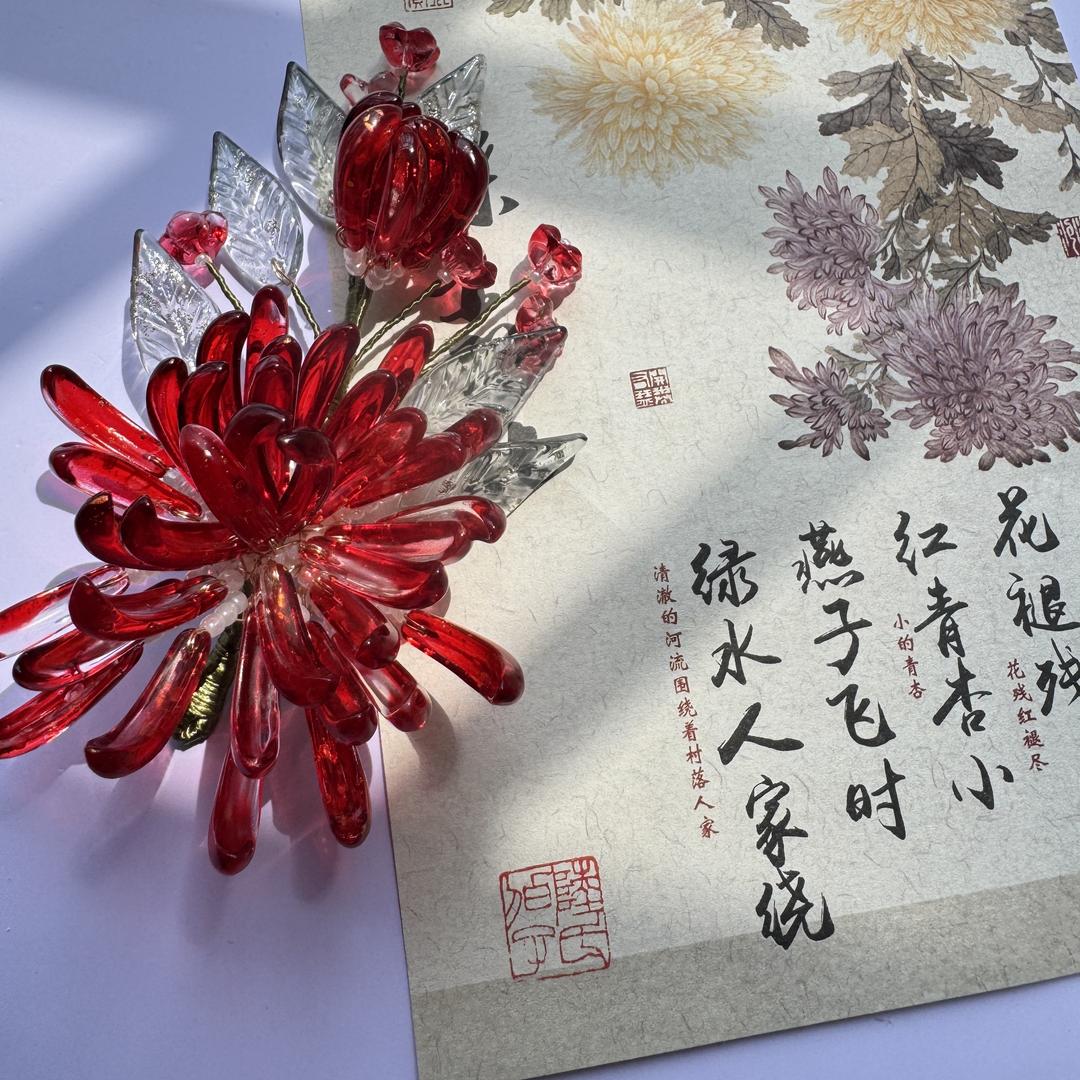 花褪残
花残红褪尽
红青杏小
小的青杏
燕子飞时
绿水人家绕
清澈的河流围绕着村落人家